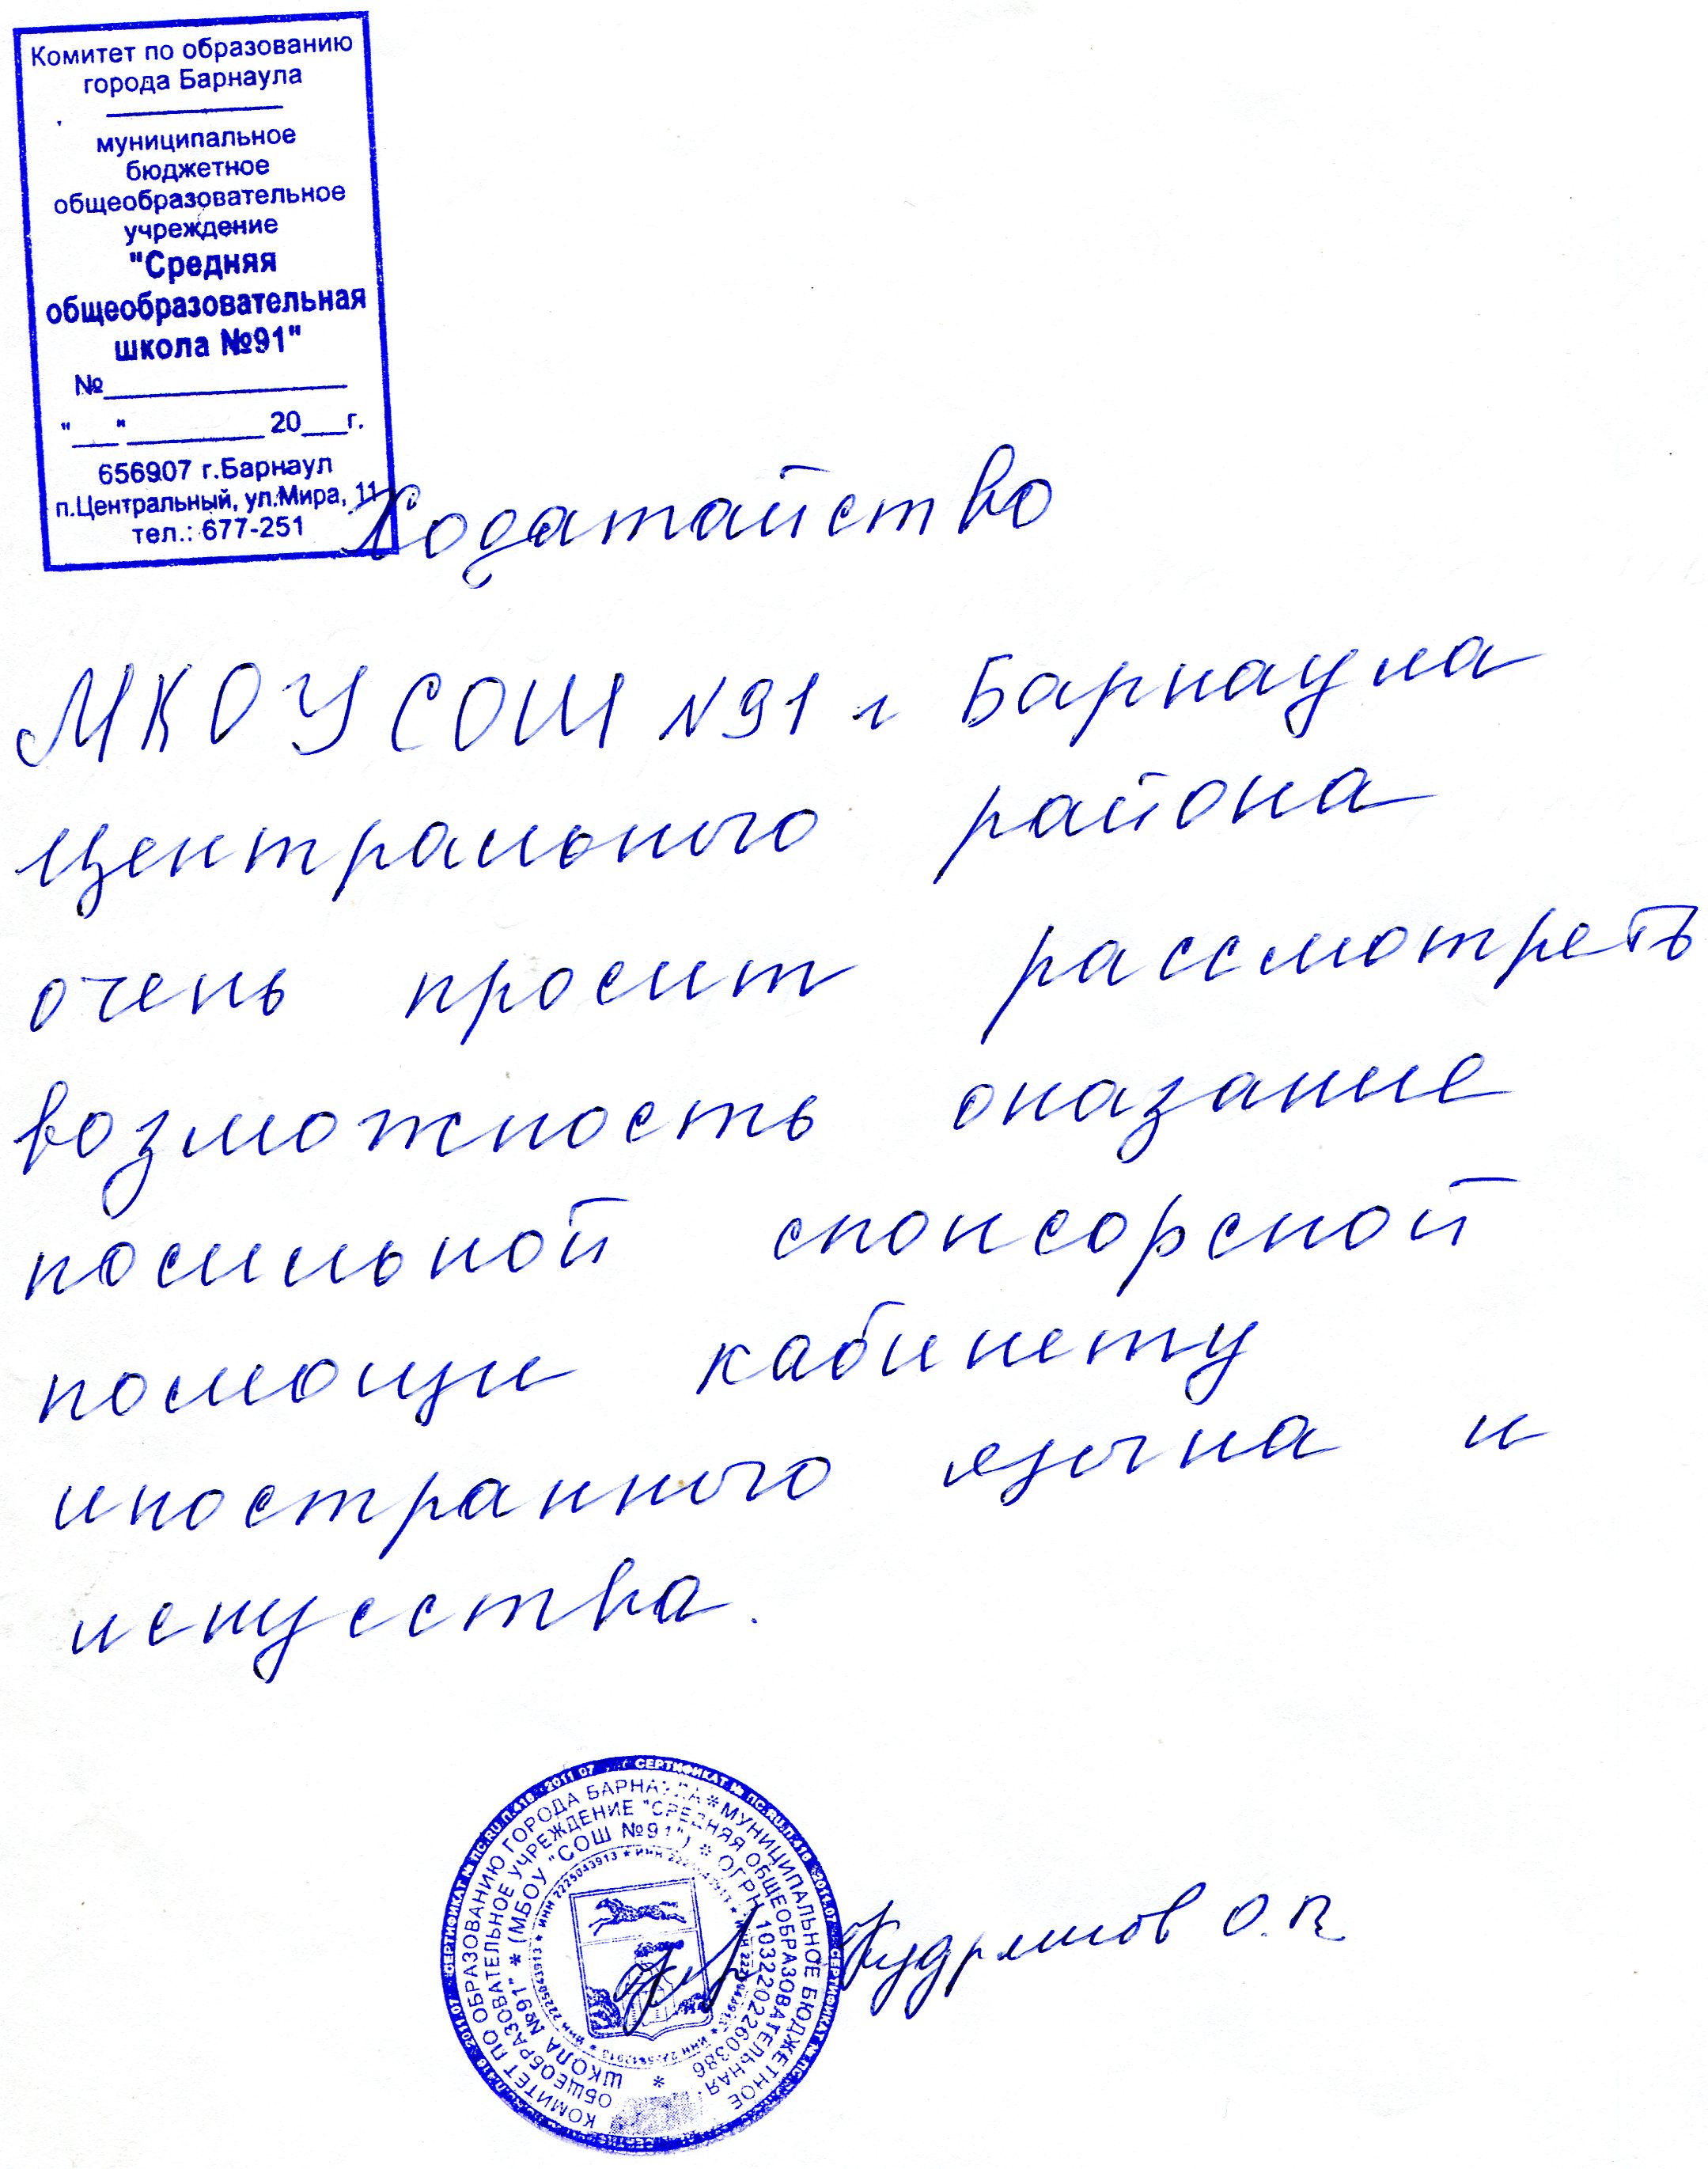 Комитет по образованию
города Барнаула
муниципальное
бюджетное
общеобразовательное
учреждение
"Средняя
общеобразовательная
школа №91"
№
"___"_________ 20___г.
656907 г.Барнаул
п.Центральный, ул.Мира, 11
тел.: 677-251
Ходатайство
МКОУ СОШ N91 г Барнаула
Центрального района
очень просит рассмотреть
возможность оказание
посильной спонсорской
помощи кабинету
иностранного языка и
искусства.
КОМИТЕТ ПО ОБРАЗОВАНИЮ ГОРОДА БАРНАУЛА * МУНИЦИПАЛЬНОЕ БЮДЖЕТНОЕ
ОБЩЕОБРАЗОВАТЕЛЬНОЕ УЧРЕЖДЕНИЕ "СРЕДНЯЯ ОБЩЕОБРАЗОВАТЕЛЬНАЯ
ШКОЛА №91" * (МБОУ "СОШ №91") * ОГРН 1032202260386 *
ИНН 2225043913 * ИНН 2225043913
СЕРТИФИКАТ № ПС.RU.П.418 2011.07
О.П.